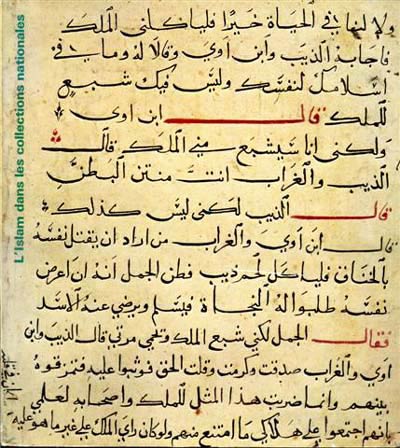 L'Islam dans les collections nationales
ولا لنا في الحياة خيرًا فليأكلني الملك
فاجابه الذيب وابن آوي وقالا له وما في
اسلامك لنفسك وليس فيك شبع
للملك قال ابن اوي
ولكني انا سيشبع مني الملك قال
الذيب والغراب انت منتن البطن
قال الذيب لكني ليس كذلك
قال ابن آوي والغراب من اراد ان يقتل نفسه
بالخناق فلياكل لحم ذيب فظن الجمل انه ان اعرض
نفسه طلبوا له النجاة فيسلم ويرضي عنه الاسد
فقال الجمل لكني شبع الملك ولحمي مري قال الذيب وابن
اوي والغراب صدقت وكرمت وقلت الحق فوثبوا عليه فمزقوه
بينهم وانما ضربت هذا المثل للملك واصحابه لعلمي
بانهم اجتمعوا علي هلاكي ما امتنع منهم ولو كان راي الملك علي غير ما هو عليه